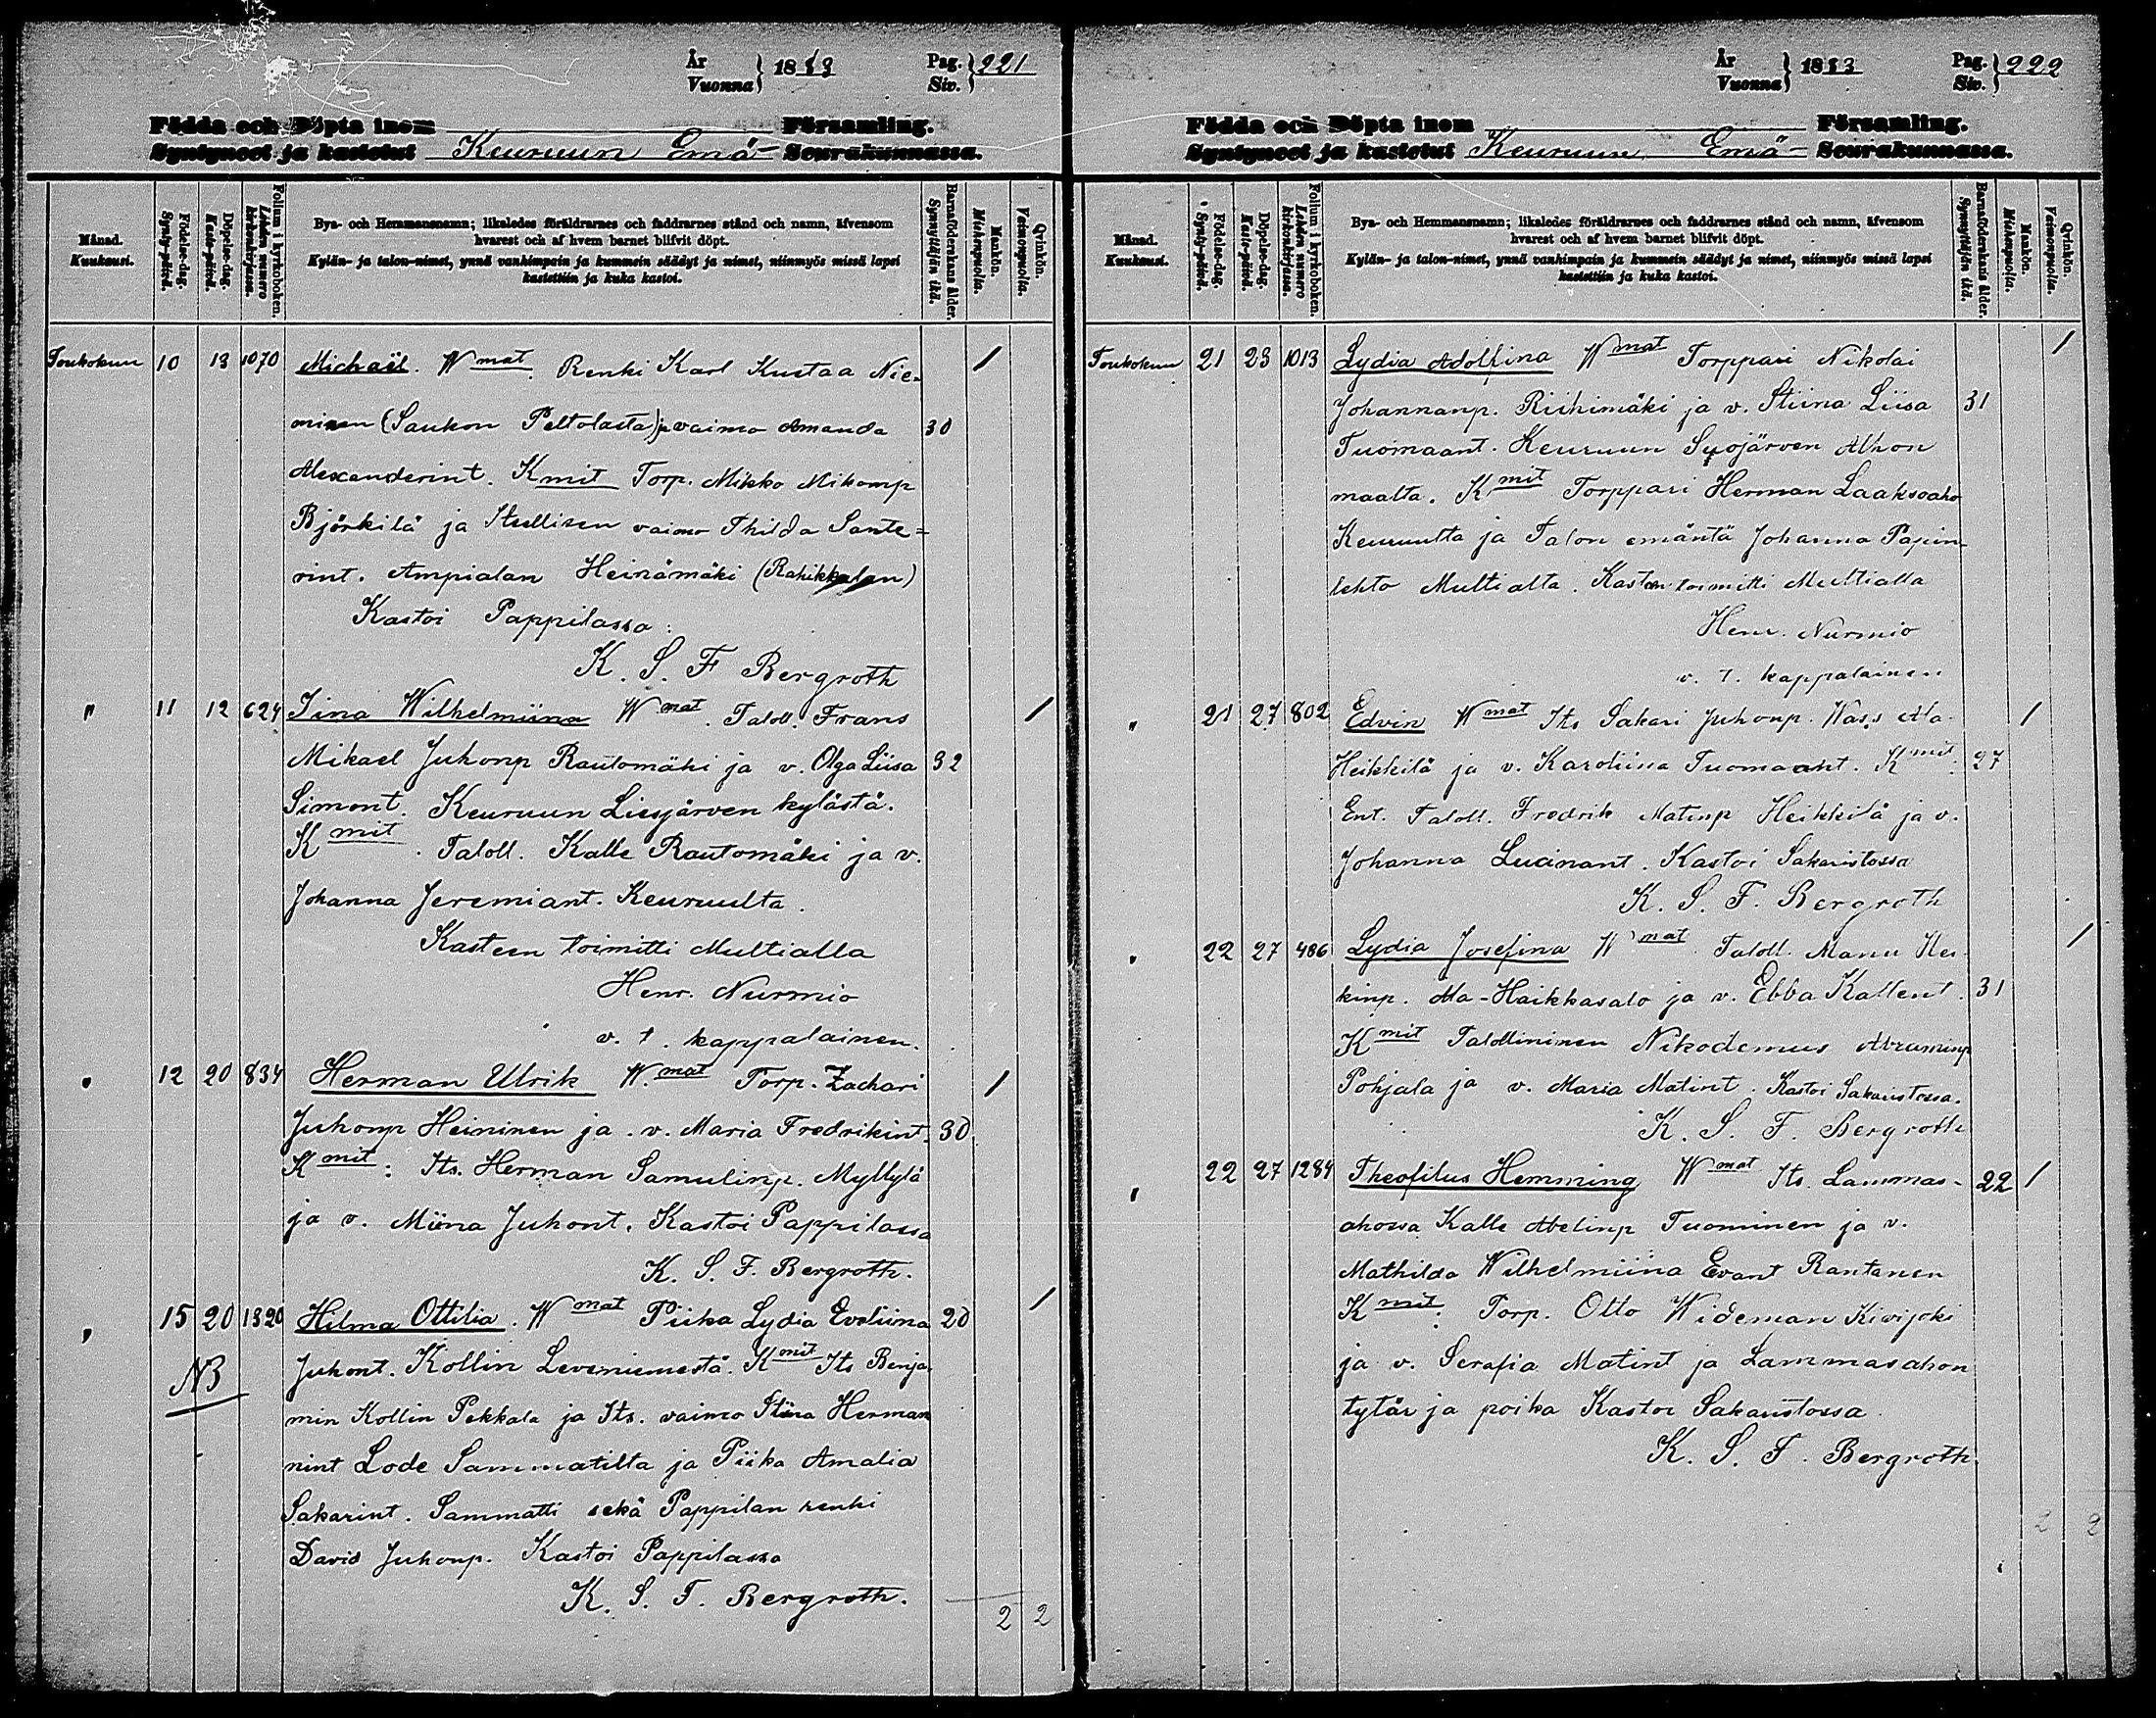 År
Vuonna } 1883
Pag.
Siv. } 221
Födda och Döpta inom Församling.
Syntyneet ja kastetut Keuruun Emä- Seurakunnassa.
Månad.
Kuukausi.
Födelse-dag.
Synty-päivä.
Döpelse-dag.
Kaste-päivä.
Folium i kyrkoboken.
Lehden numero kirkonkirjassa.
Bya- och Hemmansnamn; likaledes föräldrarnes och faddrarnes stånd och namn, äfvensom
hvarest och af hvem barnet blifvit döpt.
Kylän- ja talon-nimet, ynnä vanhimpain ja kummein säädyt ja nimet, niinmyös missä lapsi
kastettiin ja kuka kastoi.
Barnaföderskans ålder.
Synnyttäjän ikä.
Mankön.
Miehenpuolia.
Qvinkön.
Vaimonpuolia.
Toukokuun 10 13 1070 Michaël. Wmat. Renki Karl Kustaa Nie- 1
minen (Saukon Peltolasta) ja vaimo Amanda 30
Alexanderint. Kmit Torp. Mikko Mikonp
Björkilä ja Itsellisen vaimo Thilda Sante=
rint. Ampialan Heinämäki (Rahikkalan)
Kastoi Pappilassa:
K. S. F Bergroth
" 11 12 624 Iina Wilhelmiina Wmat. Taloll. Frans 1
Mikael Juhonp Rautomäki ja v. Olga Liisa 32
Simont. Keuruun Liesjärven kylästä.
Kmit. Taloll. Kalle Rautomäki ja v.
Johanna Jeremiant. Keuruulta.
Kasteen toimitti Multialla
Henr. Nurmio
v. t. kappalainen.
" 12 20 834 Herman Ulrik Wmat Torp. Zachari 1
Juhonp Heininen ja v. Maria Fredrikint. 30
Kmit: Its. Herman Samulinp. Myllylä
ja v. Miina Juhont. Kastoi Pappilassa
K. S. F. Bergroth.
" 15 20 1320 Hilma Ottilia. Wmat Piika Lydia Eveliina 20 1
NB Juhont. Kollin Leveniemestä. Kmit Its Benja-
min Kollin Pekkala ja Its. vaimo Stiina Herman
nint Lode Sammatilta ja Piika Amalia
Sakarint. Sammatti sekä Pappilan renki
David Juhonp. Kastoi Pappilassa
K. S. F. Bergroth.
2 2
År
Vuonna } 1883
Pag.
Siv. } 222
Födda och Döpta inom Församling.
Syntyneet ja kastetut Keuruun Emä- Seurakunnassa.
Månad.
Kuukausi.
Födelse-dag.
Synty-päivä.
Döpelse-dag.
Kaste-päivä.
Folium i kyrkoboken.
Lehden numero kirkonkirjassa.
Bya- och Hemmansnamn; likaledes föräldrarnes och faddrarnes stånd och namn, äfvensom
hvarest och af hvem barnet blifvit döpt.
Kylän- ja talon-nimet, ynnä vanhimpain ja kummein säädyt ja nimet, niinmyös missä lapsi
kastettiin ja kuka kastoi.
Barnaföderskans ålder.
Synnyttäjän ikä.
Mankön.
Miehenpuolia.
Qvinkön.
Vaimonpuolia.
Toukokuun 21 23 1013 Lydia Adolfina Wmat Torppari Nikolai 1
Johannanp. Riihimäki ja v. Stiina Liisa 31
Tuomaant. Keuruun Syojärven Alhon
maalta. Kmit Torppari Herman Laaksoaho
Keuruulta ja Talon emäntä Johanna Papin-
lehto Multialta. Kasteen toimitti Multialla
Henr. Nurmio
v. t. kappalainen
" 21 27 802 Edvin Wmat Its Sakari Juhonp. Wass Ala- 1
Heikkilä ja v. Karoliina Tuomaant. Kmit. 27
Ent. Taloll. Fredrik Matinp Heikkilä ja v.
Johanna Lucinant. Kastoi Sakaristossa
K. S. F. Bergroth
" 22 27 486 Lydia Josefina Wmat. Taloll. Manu Hei- 1
kinp. Ala-Haikkasalo ja v. Ebba Kallent. 31
Kmit Talollininen Nikodemus Abraminp
Pohjala ja v. Maria Matint. Kastoi Sakaristossa.
K. S. F. Bergroth
" 22 27 1284 Theofilus Hemming Wmat Its. Lammas- 22 1
ahossa Kalle Abelinp Tuominen ja v.
Mathilda Wilhelmiina Evant Rantanen
Kmit. Torp. Otto Wideman Kivijoki
ja v. Serafia Matint ja Lammasahon
tytär ja poika Kastoi Sakaristossa.
K. S. F. Bergroth.
2 2